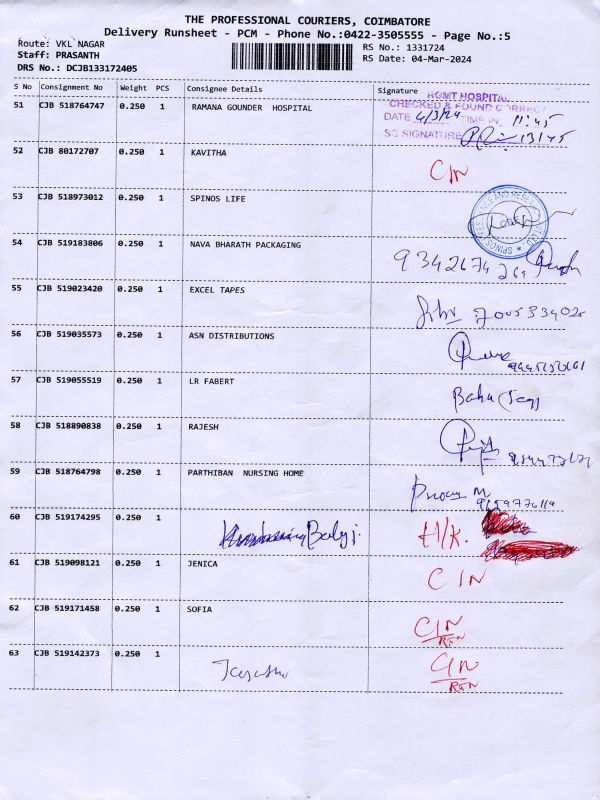 THE PROFESSIONAL COURIERS, COIMBATORE
Delivery Runsheet - PCM - Phone No.:0422-3505555 - Page No.:5
Route: VKL NAGAR
RS No.: 1331724
Staff: PRASANTH
RS Date: 04-Mar-2024
DRS No.: DCJB133172405
S No Consignment No Weight PCS Consignee Details Signature
51 CJB 518764747 0.250 1 RAMANA GOUNDER HOSPITAL
RGMT HOSPITAL
CHECKED & FOUND CORRECT
DATE 4/3/24 TIME IN 11:45
SC SIGNATURE 13145
52 CJB 80172707 0.250 1 KAVITHA
C/N
53 CJB 518973012 0.250 1 SPINOS LIFE
54 CJB 519183806 0.250 1 NAVA BHARATH PACKAGING
9342674269
55 CJB 519023420 0.250 1 EXCEL TAPES
56 CJB 519035573 0.250 1 ASN DISTRIBUTIONS
57 CJB 519055519 0.250 1 LR FABERT
58 CJB 518890838 0.250 1 RAJESH
59 CJB 518764798 0.250 1 PARTHIBAN NURSING HOME
60 CJB 519174295 0.250 1
Balaji
H/K.
61 CJB 519098121 0.250 1 JENICA
C/N
62 CJB 519171458 0.250 1 SOFIA
C/N
RTN
63 CJB 519142373 0.250 1
C/N
RTN